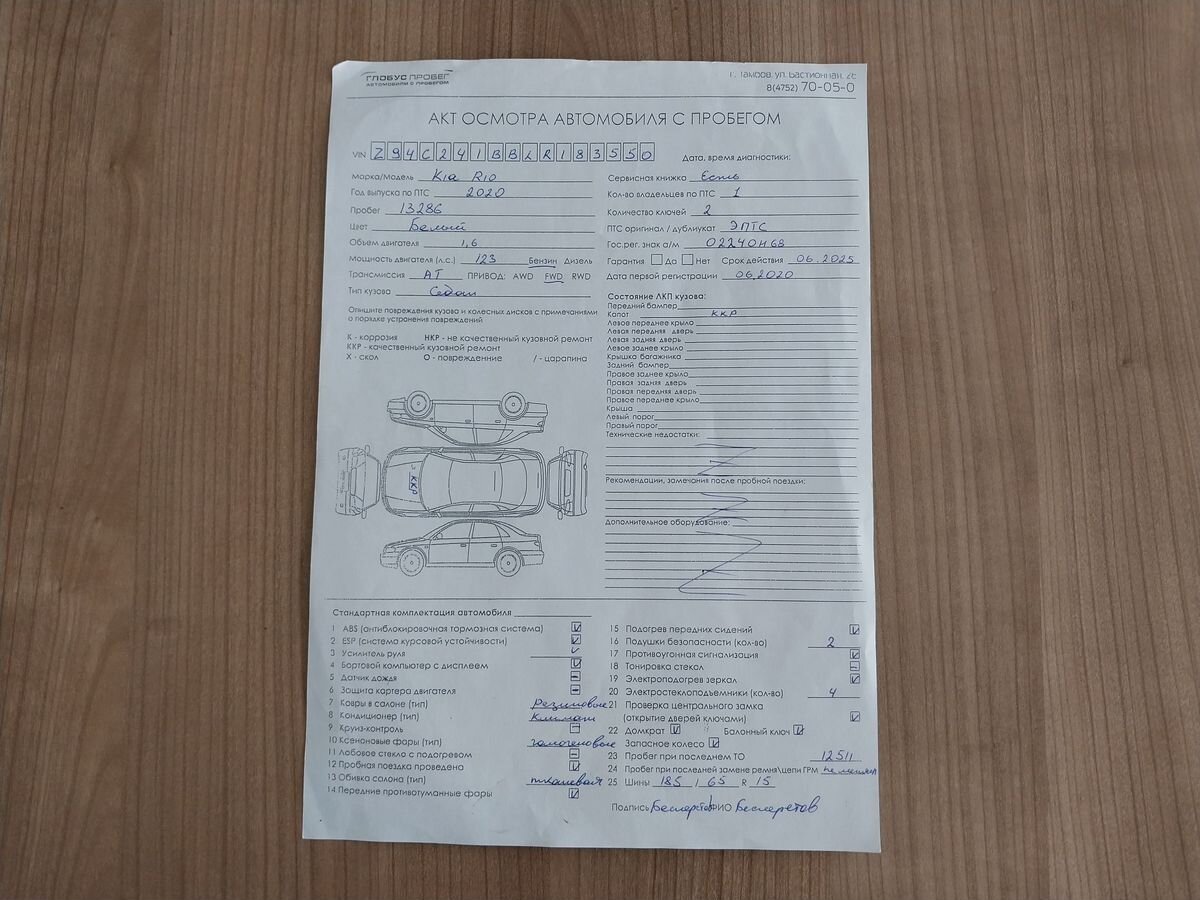 ГЛОБУС ПРОБЕГ
АВТОМОБИЛИ С ПРОБЕГОМ
г. Тамбов, ул. Бастионная,
8(4752) 70-05-0
АКТ ОСМОТРА АВТОМОБИЛЯ С ПРОБЕГОМ
VIN Z94C241BBLR183550
Дата, время диагностики:
Марка/Модель Kia Rio
Год выпуска по ПТС 2020
Пробег 13286
Цвет Белый
Объем двигателя 1,6
Мощность двигателя (л.с.) 123 Бензин Дизель
Трансмиссия АТ ПРИВОД: AWD FWD RWD
Тип кузова Седан
Опишите повреждения кузова и колесных дисков с примечаниями
о порядке устранения повреждений
К - коррозия НКР - не качественный кузовной ремонт
ККР - качественный кузовной ремонт
Х - скол О - повреждение / - царапина
ККР
Сервисная книжка Есть
Кол-во владельцев по ПТС 1
Количество ключей 2
ПТС оригинал / дубликат ЭПТС
Гос.рег. знак а/м О224ОН68
Гарантия Да Нет Срок действия 06.2025
Дата первой регистрации 06.2020
Состояние ЛКП кузова:
Передний бампер
Капот ККР
Левое переднее крыло
Левая передняя дверь
Левая задняя дверь
Левое заднее крыло
Крышка багажника
Задний бампер
Правое заднее крыло
Правая задняя дверь
Правая передняя дверь
Правое переднее крыло
Крыша
Левый порог
Правый порог
Технические недостатки:
Рекомендации, замечания после пробной поездки:
Дополнительное оборудование:
Стандартная комплектация автомобиля
1 ABS (антиблокировочная тормозная система)
2 ESP (система курсовой устойчивости)
3 Усилитель руля
4 Бортовой компьютер с дисплеем
5 Датчик дождя
6 Защита картера двигателя
7 Ковры в салоне (тип) резиновые
8 Кондиционер (тип) климат
9 Круиз-контроль
10 Ксеноновые фары (тип) галогеновые
11 Лобовое стекло с подогревом
12 Пробная поездка проведена
13 Обивка салона (тип) тканевая
14 Передние противотуманные фары
15 Подогрев передних сидений
16 Подушки безопасности (кол-во) 2
17 Противоугонная сигнализация
18 Тонировка стекол
19 Электроподогрев зеркал
20 Электростеклоподъемники (кол-во) 4
21 Проверка центрального замка
(открытие дверей ключами)
22 Домкрат Балонный ключ
Запасное колесо
23 Пробег при последнем ТО 12511
24 Пробег при последней замене ремня\цепи ГРМ не менялся
25 Шины 185 / 65 R 15
Подпись ФИО